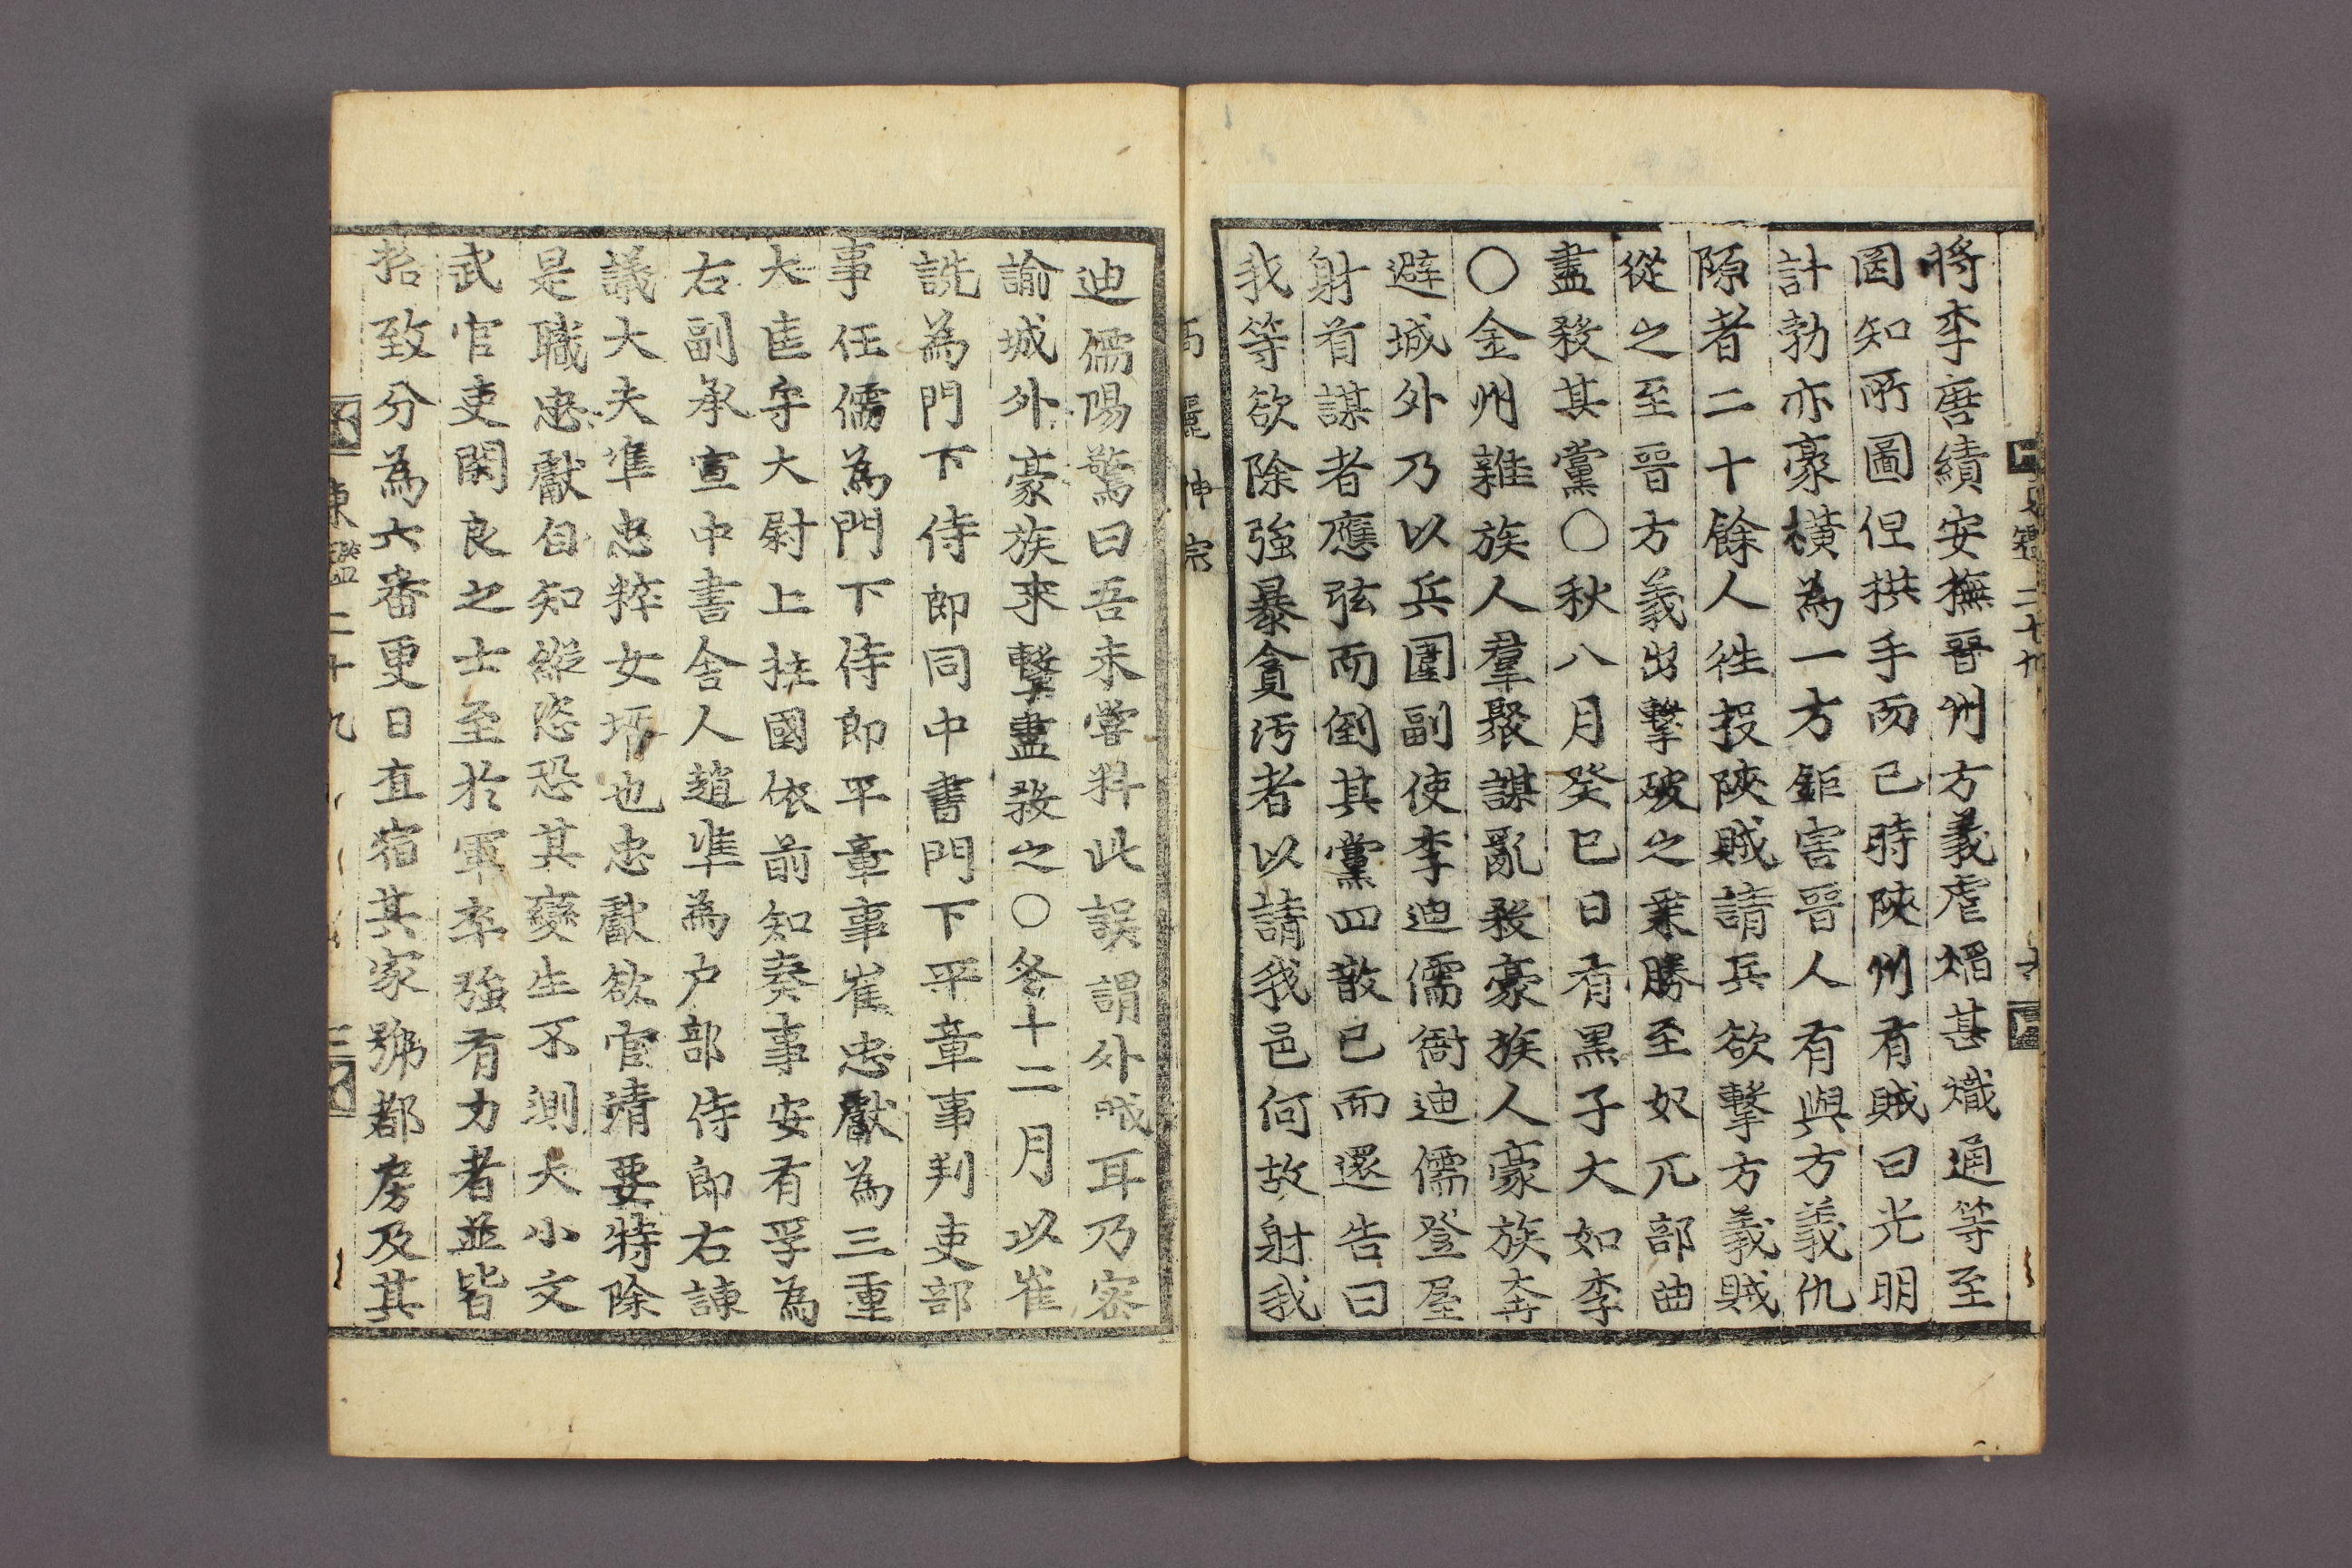 將李唐績安撫晉州方義虐焰甚熾通等至
罔知所圖但拱手而已時陝州有賊曰光明
計勃亦豪橫為一方鉅害晉人有與方義仇
隙者二十餘人徃投陝賊請兵欲擊方義賊
從之至晉方義出擊破之乗勝至奴兀部曲
盡殺其黨○秋八月癸巳日有黒子大如李
○金州雜族人羣聚謀亂殺豪族人豪族奔
避城外乃以兵圍副使李迪儒衙迪儒登屋
射首謀者應弦而倒其黨四散已而還告曰
我等欲除強暴貪汚者以請我邑何故射我
高麗神宗
迪儒陽驚曰吾未嘗料此誤謂外賊耳乃密
諭城外豪族来擊盡殺之○冬十二月以崔
詵為門下侍郎同中書門下平章事判吏部
事任儒為門下侍郎平章事崔忠獻為三重
大匡守大尉上拄國依前知奏事安有孚為
右副承宣中書舍人趙準為户部侍郎右諫
議大夫凖忠粹女壻也忠獻欲官清要特除
是職忠獻自知縱恣恐其變生不測大小文
武官吏閑良之士至於軍卒強有力者並皆
招致分為六番更日直宿其家號都房及其
東鑑二十九